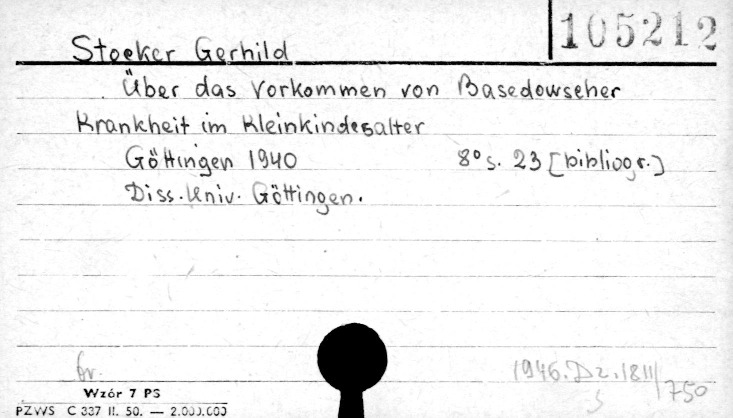 105212
Stoeker Gerhild
Über das Vorkommen von Basedowseher
Krankheit im Kleinkindesalter
Göttingen 1940 8° s. 23 [bibliogr.]
Diss. Univ. Göttingen.
br.
1946. Dz. 1811/750
Wzór 7 PS
PZWS C 337 II. 50. — 2.000.000